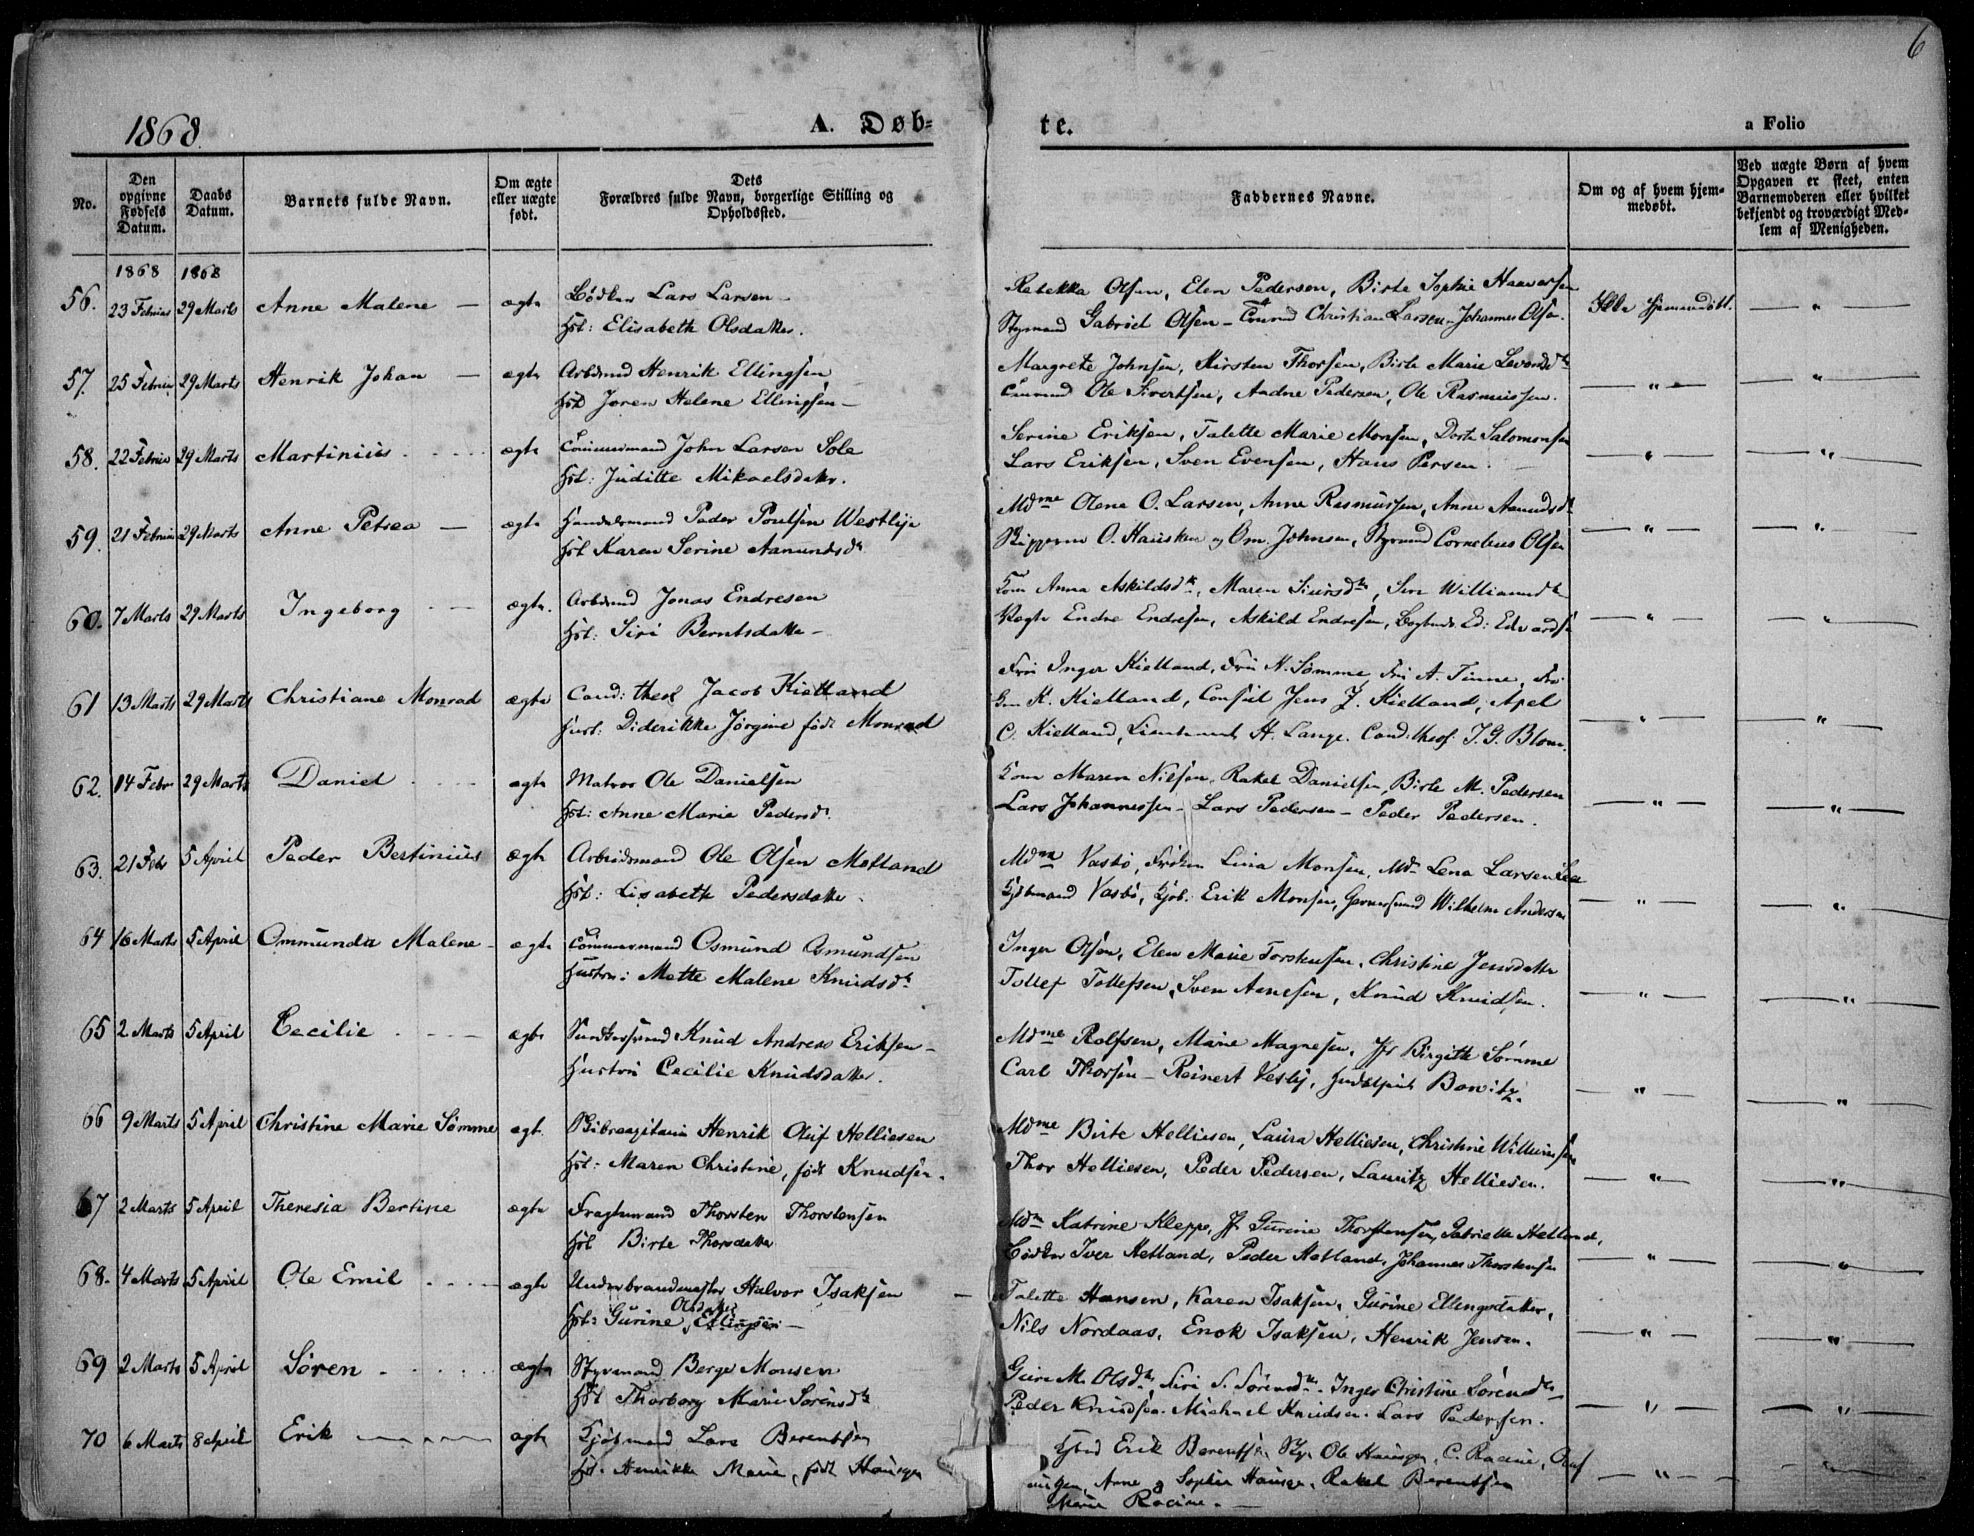 6
1868.
A. Døb-
te.
a Folio
No.
Den opgivne Fødsels Datum.
Daabs Datum.
Barnets fulde Navn.
Om ægte eller uægte født.
Dets Forældres fulde Navn, borgerlige Stilling og Opholdssted.
Faddernes Navne.
Om og af hvem hjemmedøbt.
Ved uægte Børn af hvem Opgaven er skeet, enten Barnemoderen eller hvilket bekjendt og troværdigt Medlem af Menigheden.
1868 1868
56. 23 Februar 29 Marts Anne Malene — ægte Bødker Lars Larsen —
Hst: Elisabeth Olsdatter.
Rebekka Olsen, Elen Pedersen, Birte Sophie Haaversen
Styrmand Gabriel Olsen — Christian Larsen — Johannes Olsen.
Ikke hjemmedøbt. — " —
57. 25 Februar 29 Marts Henrik Johan — ægte Arbmd Henrik Ellingsen
Hst Joren Helene Ellingsen —
Margrete Johnsen, Kirsten Thorsen, Birte Marie
Ole Sivertsen, Andne Pedersen, Ole Rasmussen.
— " — — " —
58. 22 Februar 29 Marts Martinius ægte Tømmermand John Larsen Sole
Hst: Juditte Mikaelsdatter.
Serine Eriksen, Talette Marie Monsen, Dorte Salomonsen
Lars Eriksen, Sven Evensen, Hans Persen.
— " — — " —
59. 21 Februar 29 Marts Anne Petrea — ægte Handelsmand Peder Poulsen Westlye
Hst Karen Serine Aamundsdr
Mdme Olene O. Larsen, Anne Rasmussen, Anne Aamundsdr
Skipperne O. Hausken og Om. Johnsen, Styrmd Cornelius Olsen
— " — — " —
60. 7 Marts 29 Marts Ingeborg — ægte. Arbmd Jonas Endresen
Hst: Siri Berntsdatter —
Kone Anna Askildsdr, Maren Siursdtr, Williamsdtr
Endre Endresen, Askild Endresen, Ed: Edvardsen
— " — — " —
61 13 Marts 29 Marts Christiane Monrad ægte Cand: theol Jacob Kielland
Hust: Diderikke Jörgine født Monrad
Fru Inger Kielland, Fru N. Sömme, Fru A. Finne, Fru
K. Kielland, Consul Jens J. Kielland, Axel
C. Kielland, Lieutenant H. Lange. Cand. theol. J. G. Blom.
— " — — " —
62. 14 Febr 29 Marts Daniel ægte Matros Ole Danielsen
Hst: Anne Marie Pedersdr.
Kone Maren Nilsen, Rakel Danielsen, Birte M. Pedersen
Lars Johannessen — Lars Pedersen — Peder Pedersen.
— " — — " —
63. 21 Febr 5 April Peder Bertinius ægte Arbeidsmand Ole Olsen Motland
Hst: Lisabeth Pedersdatter.
Mdme Vasbö, Frøken Lina Monsen, Md Lena Larsen
Kjöbmand Vasbö, Kjöb. Erik Monsen, Garversvend Wilhelm Andersen
— " — — " —
64 16 Marts 5 April Ommunda Malene — ægte Tømmermand Osmund Osmundsen
Hustru: Mette Malene Knudsdr
Inger Olsen, Elen Marie Torstensen, Christine Jensdatter
Tollef Tollefsen, Sven Aanesen, Knud Knudsen.
— " — — " —
65 2 Marts 5 April Cecilie ægte Knud Andreas Eriksen —
Hustru Cecilie Knudsdatter.
Mdme Rolfsen, Marie Magnesen, Jf Birgitte Sømme
Carl Thorsen — Reinert Vestly, Bonitz.
— " — — " —
66 9 Marts 5 April Christine Marie Sömme ægte Henrik Oluf Helliesen
Hst: Maren Christine, født Knudsen.
Mdme Birte Helliesen, Laura Helliesen, Christine
Thor Helliesen, Peder Pedersen, Lauritz Helliesen.
— " — — " —
67 2 Marts 5 April Theresia Bertine ægte Fragtemand Thorsten Thorstensen
Hst Birte Thorsdatter
Mdm Katrine Kleppe, Jf Gurine Thorstensen, Gabrielle Hetland,
Bødker Iver Hetland, Peder Hetland, Johannes Thorstensen
— " — — " —
68. 4 Marts 5 April Ole Emil ægte Underbrandmester Halvor Isaksen —
Hst: Gurine Olsdatter Ellingsen —
Talette Hansen, Karen Isaksen, Gurine Ellingsdatter,
Nils Nordaas, Enok Isaksen, Henrik Jensen.
— " — — " —
69 2 Marts 5 April Sören ægte Styrmand Berge Monsen
Hst Thorborg Marie Sörensdtr
Guri M. Olsdtr, Siri S. Sörensdtr. Inger Christine Sörensdtr
Peder Knudsen. Michael Knudsen. Lars Pedersen.
— " — — " —
70 6 Marts 8 April Erik ægte Kjöbmand Lars Berentsen
Hst. Henrikke Marie, født
Erik Berentsen, Ole C. Racine,
Anne og Sophie Rakel Berentsen
Marie Racine. —
— " — — " —